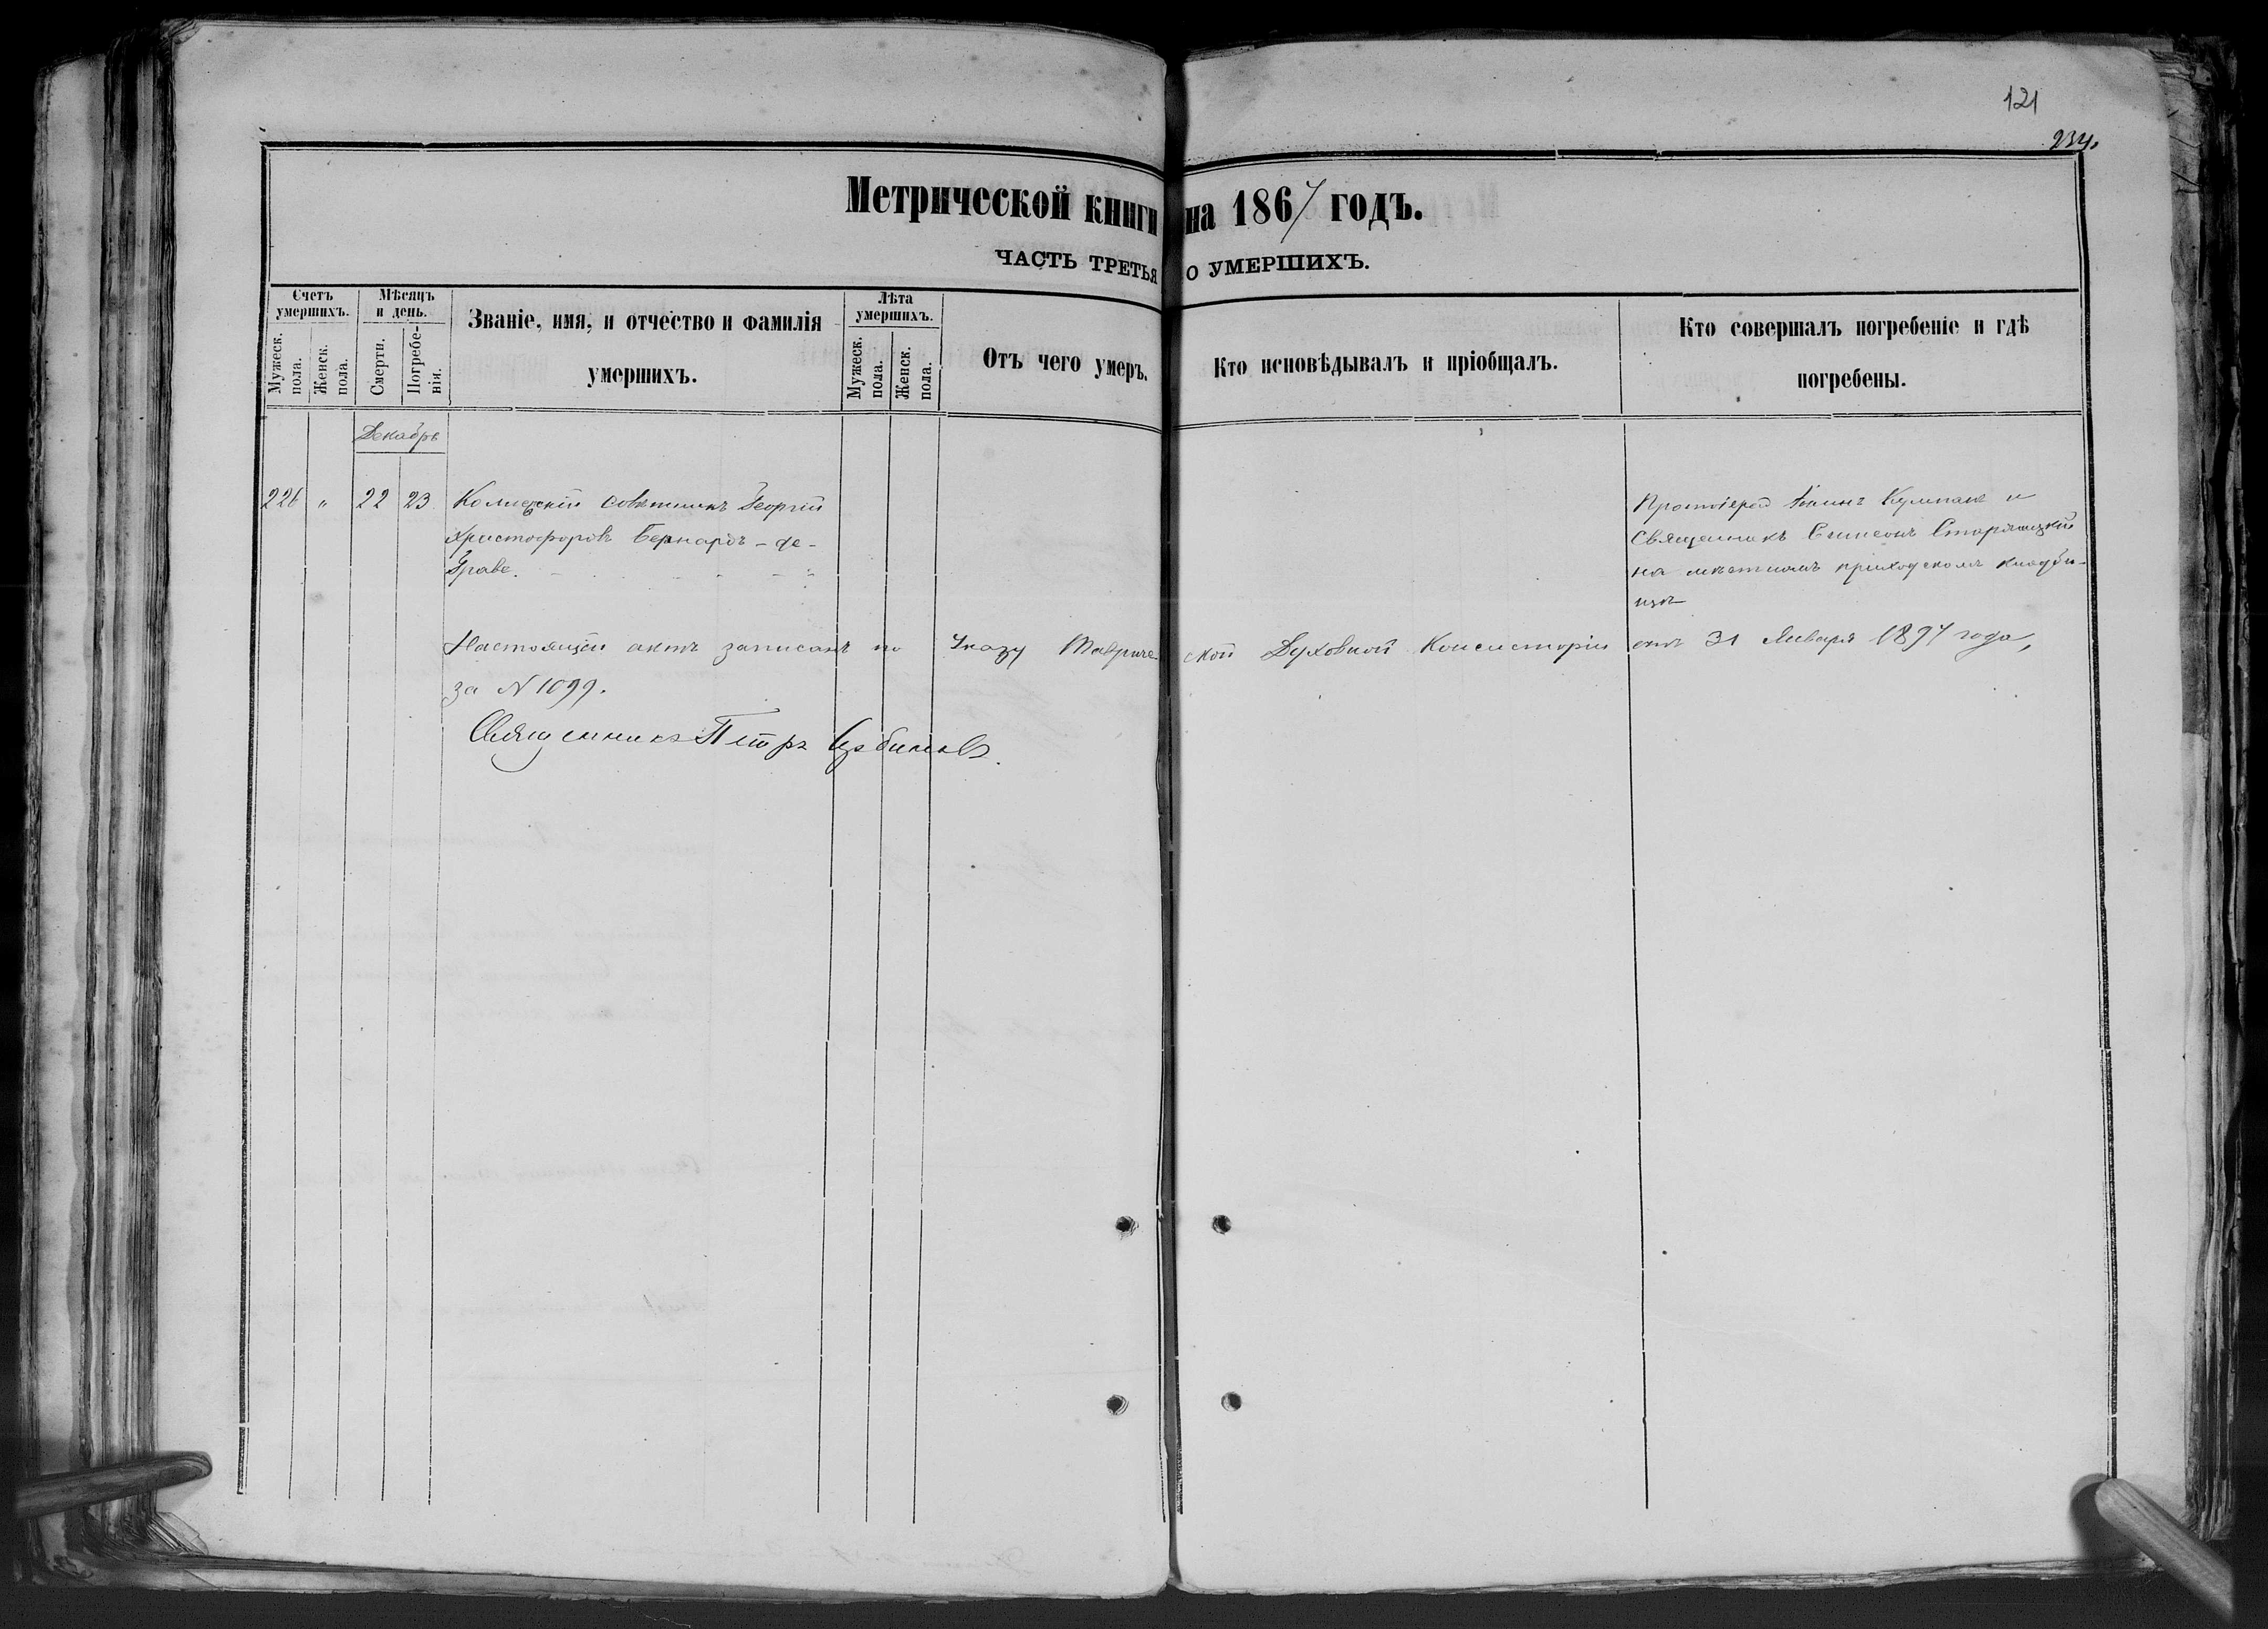 121
234.
Метрической книги на 1867 годъ.
ЧАСТЬ ТРЕТЬЯ О УМЕРШИХЪ.
Счетъ умершихъ.
Мужеск. пола.
Женск. пола.
Мѣсяцъ и день.
Смерти.
Погребе-
нія.
Званіе, имя, и отчество и фамилія
умершихъ.
Лѣта умершихъ.
Мужеск. пола.
Женск. пола.
Отъ чего умеръ.
Кто исповѣдывалъ и пріобщалъ.
Кто совершалъ погребеніе и гдѣ
погребены.
Декабрь
226 " 22 23 Коллежскій Совѣтникъ Георгій
Христофоровъ Бернардъ-де-
Граве.
Протоіерей Іоаннъ и
Священникъ Симеонъ
на мѣстномъ приходскомъ кладби-
щѣ
Настоящій актъ записанъ по Указу Тавриче-ской Духовной Консисторіи отъ 31 Января 1897 года,
за N 1099.
Священникъ Петръ